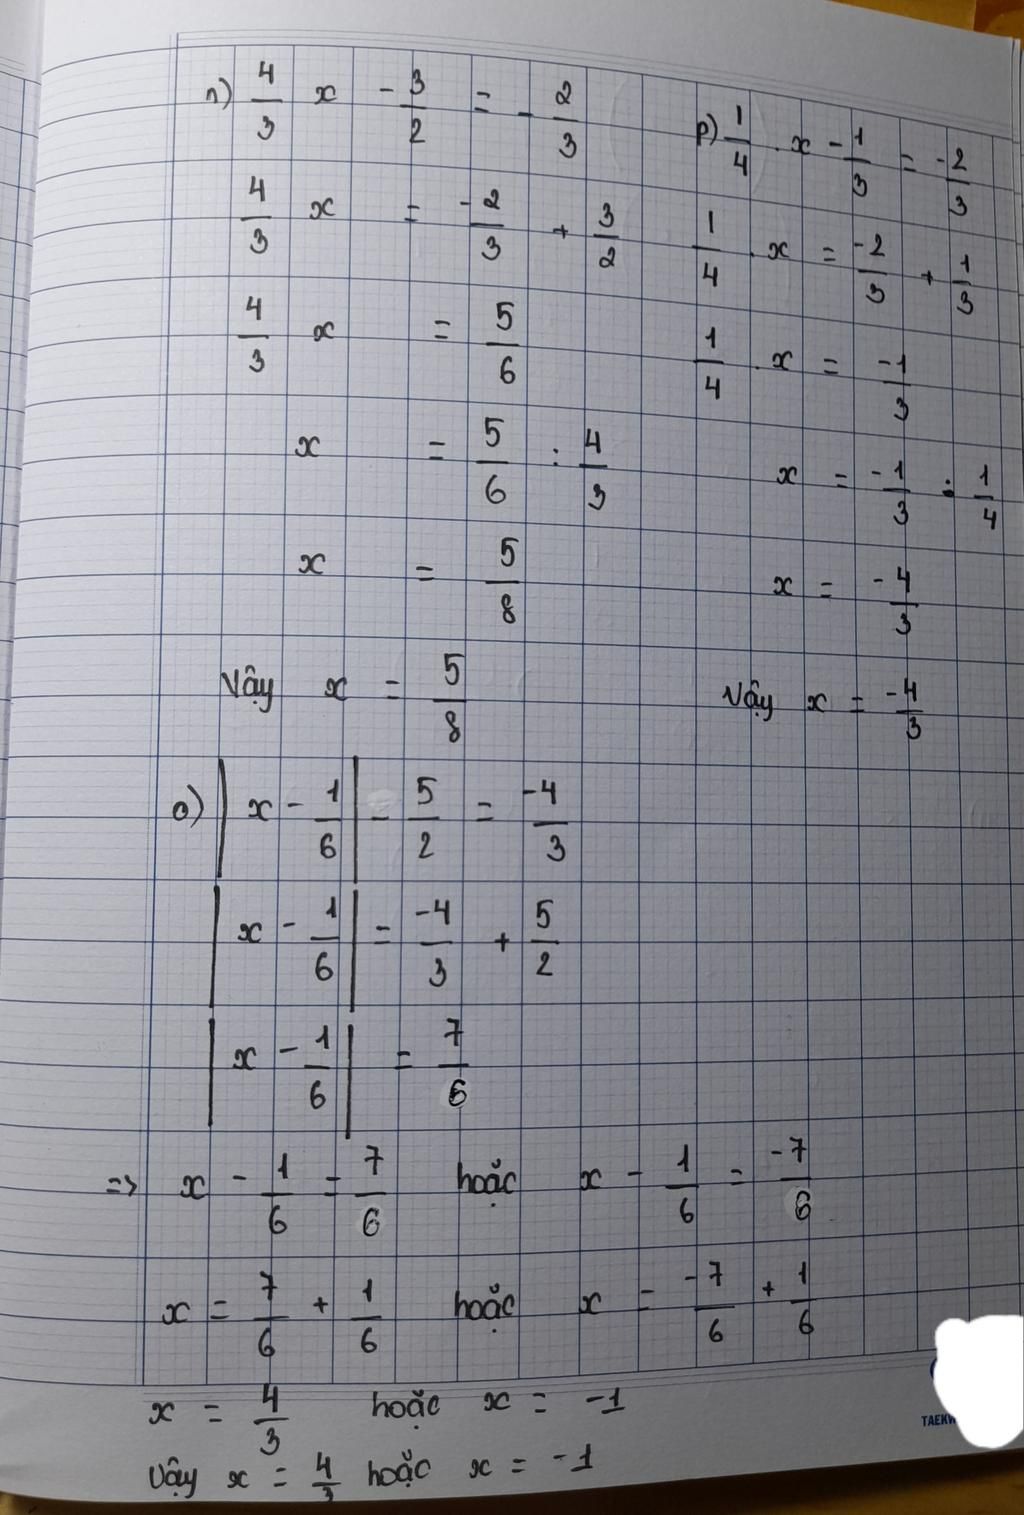 n) 4/3 x - 3/2 = - 2/3
4/3 x = -2/3 + 3/2
4/3 x = 5/6
x = 5/6 : 4/3
x = 5/8
Vậy x = 5/8
p) 1/4 . x - 1/3 = -2/3
1/4 . x = -2/3 + 1/3
1/4 . x = -1/3
x = -1/3 : 1/4
x = -4/3
Vậy x = -4/3
o) |x - 1/6| = 5/2 = -4/3
|x - 1/6| = -4/3 + 5/2
|x - 1/6| = 7/6
=> x - 1/6 = 7/6 hoặc x - 1/6 = -7/6
x = 7/6 + 1/6 hoặc x = -7/6 + 1/6
x = 4/3 hoặc x = -1
Vậy x = 4/3 hoặc x = -1